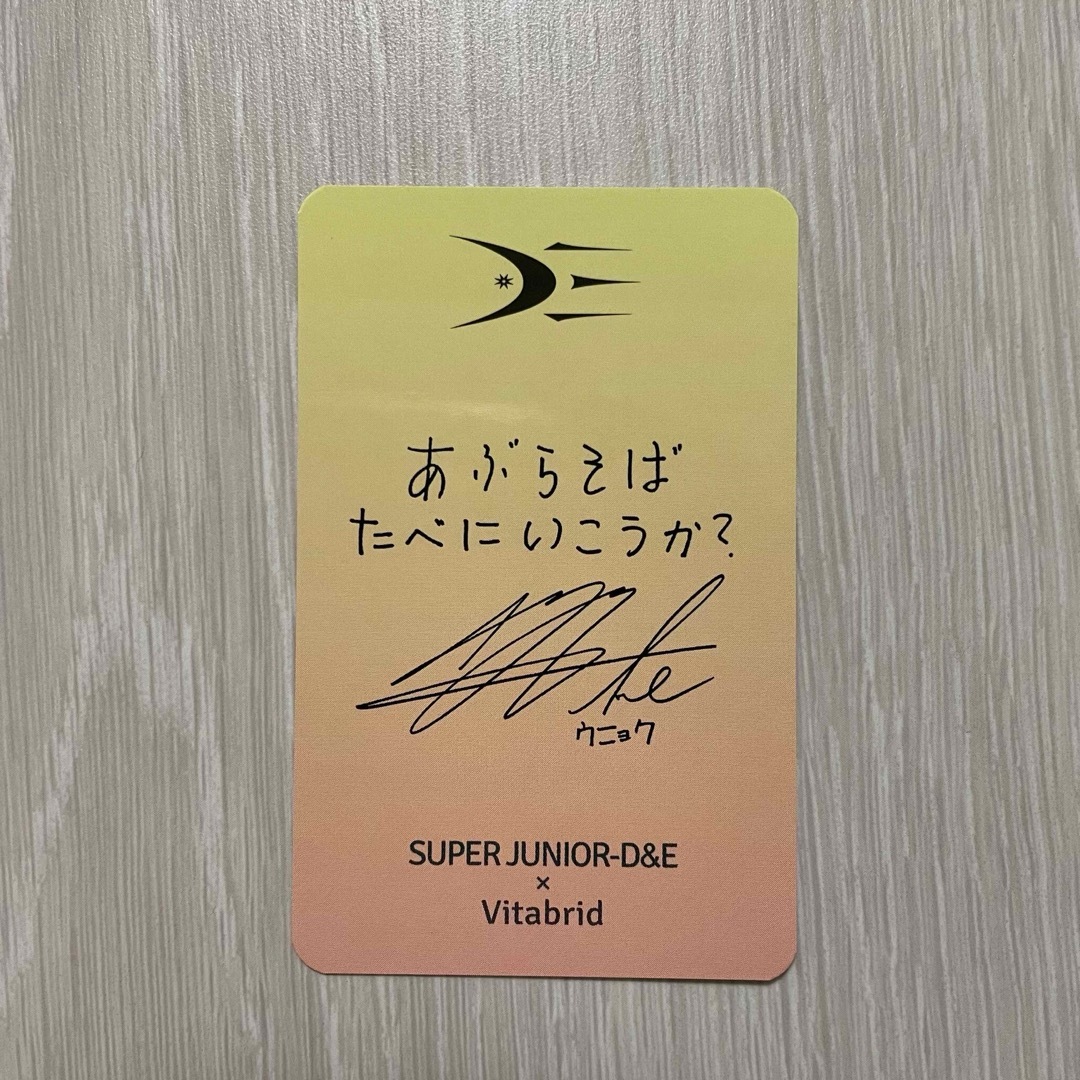 DE
あぶらそば
たべにいこうか?
ウニョク
SUPER JUNIOR-D&E
×
Vitabrid